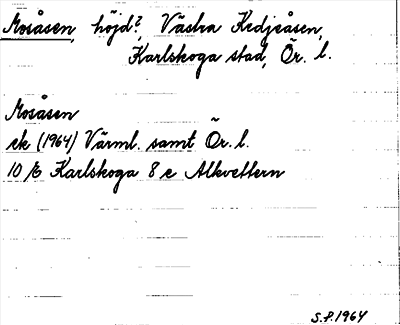 Mosåsen, höjd?, Västra Kedjeåsen,
Karlskoga stad, Ör. l.
Mosåsen
ek (1964) Värml. samt Ör. l.
10 E Karlskoga 8 e Alkvettern
S.P. 1964